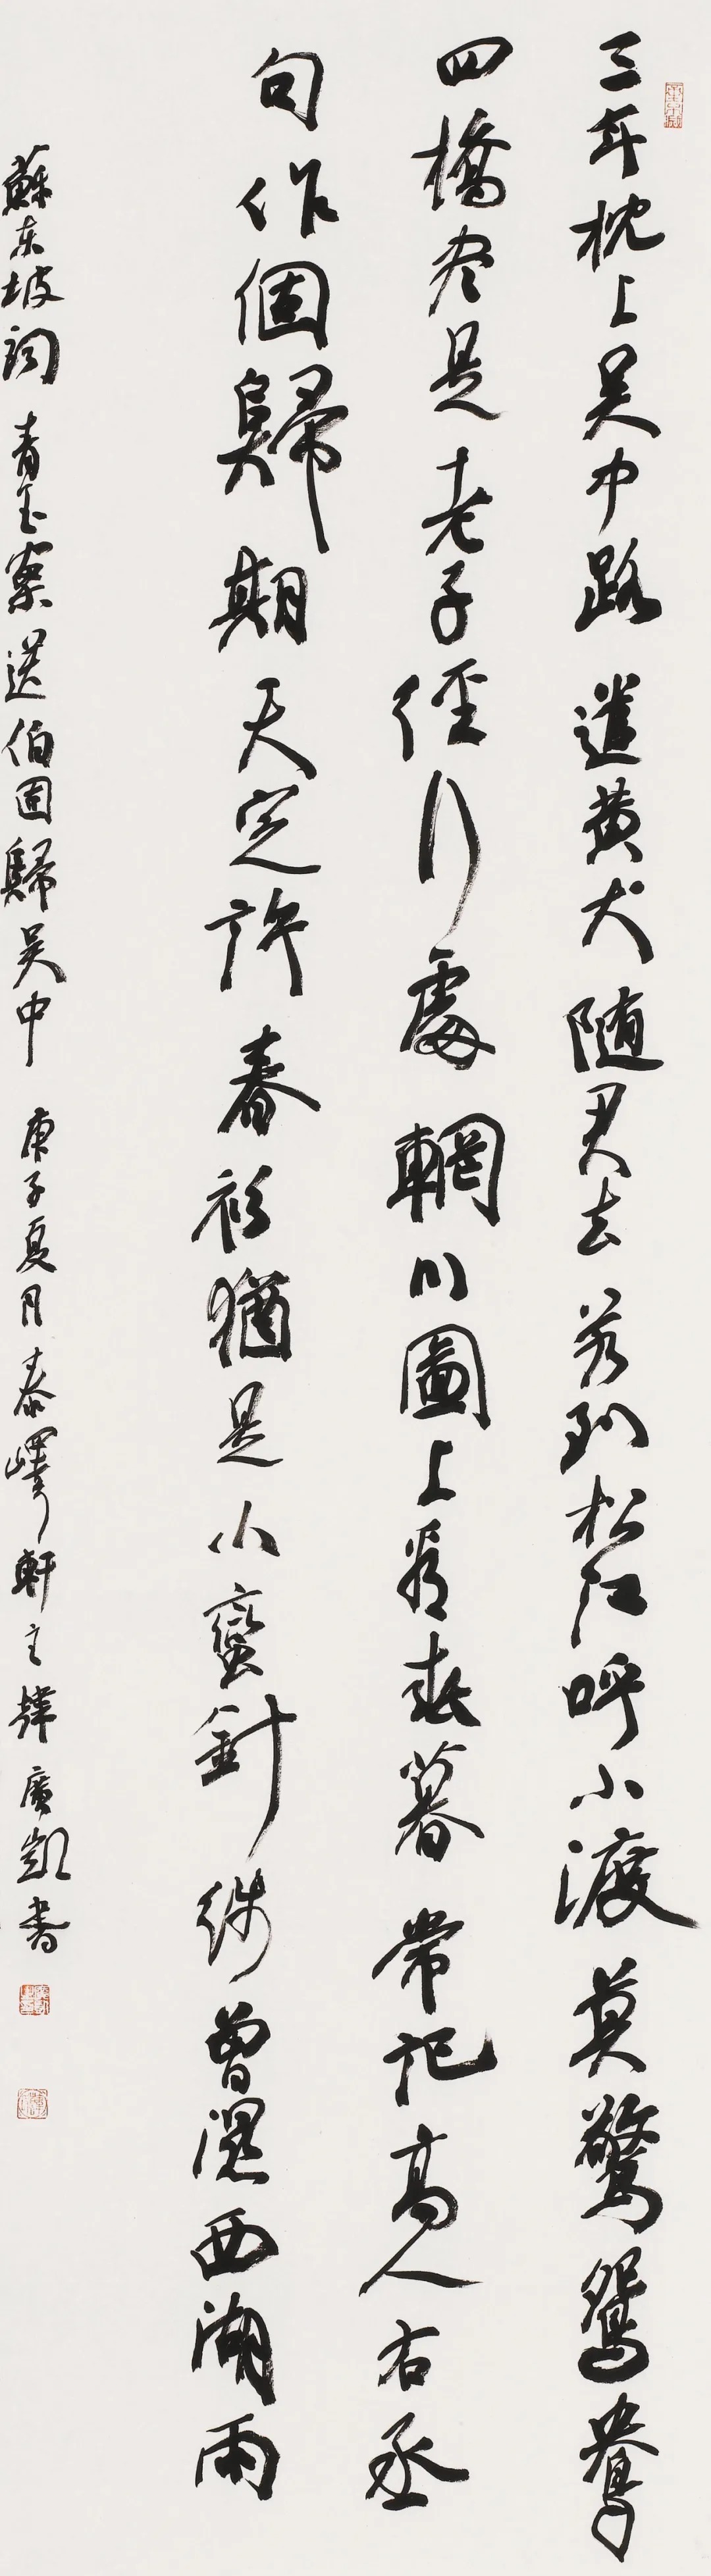 三年枕上吴中路遣黄犬随君去若到松江呼小渡莫驚鴛鴦
四橋尽是老子徑行處輞川圖上看春暮常記高人右丞
句作個歸期天定許春衫猶是小蠻針線曾濕西湖雨
蘇东坡詞青玉案送伯固歸吴中庚子夏月泰嶧軒主韓廣凱書